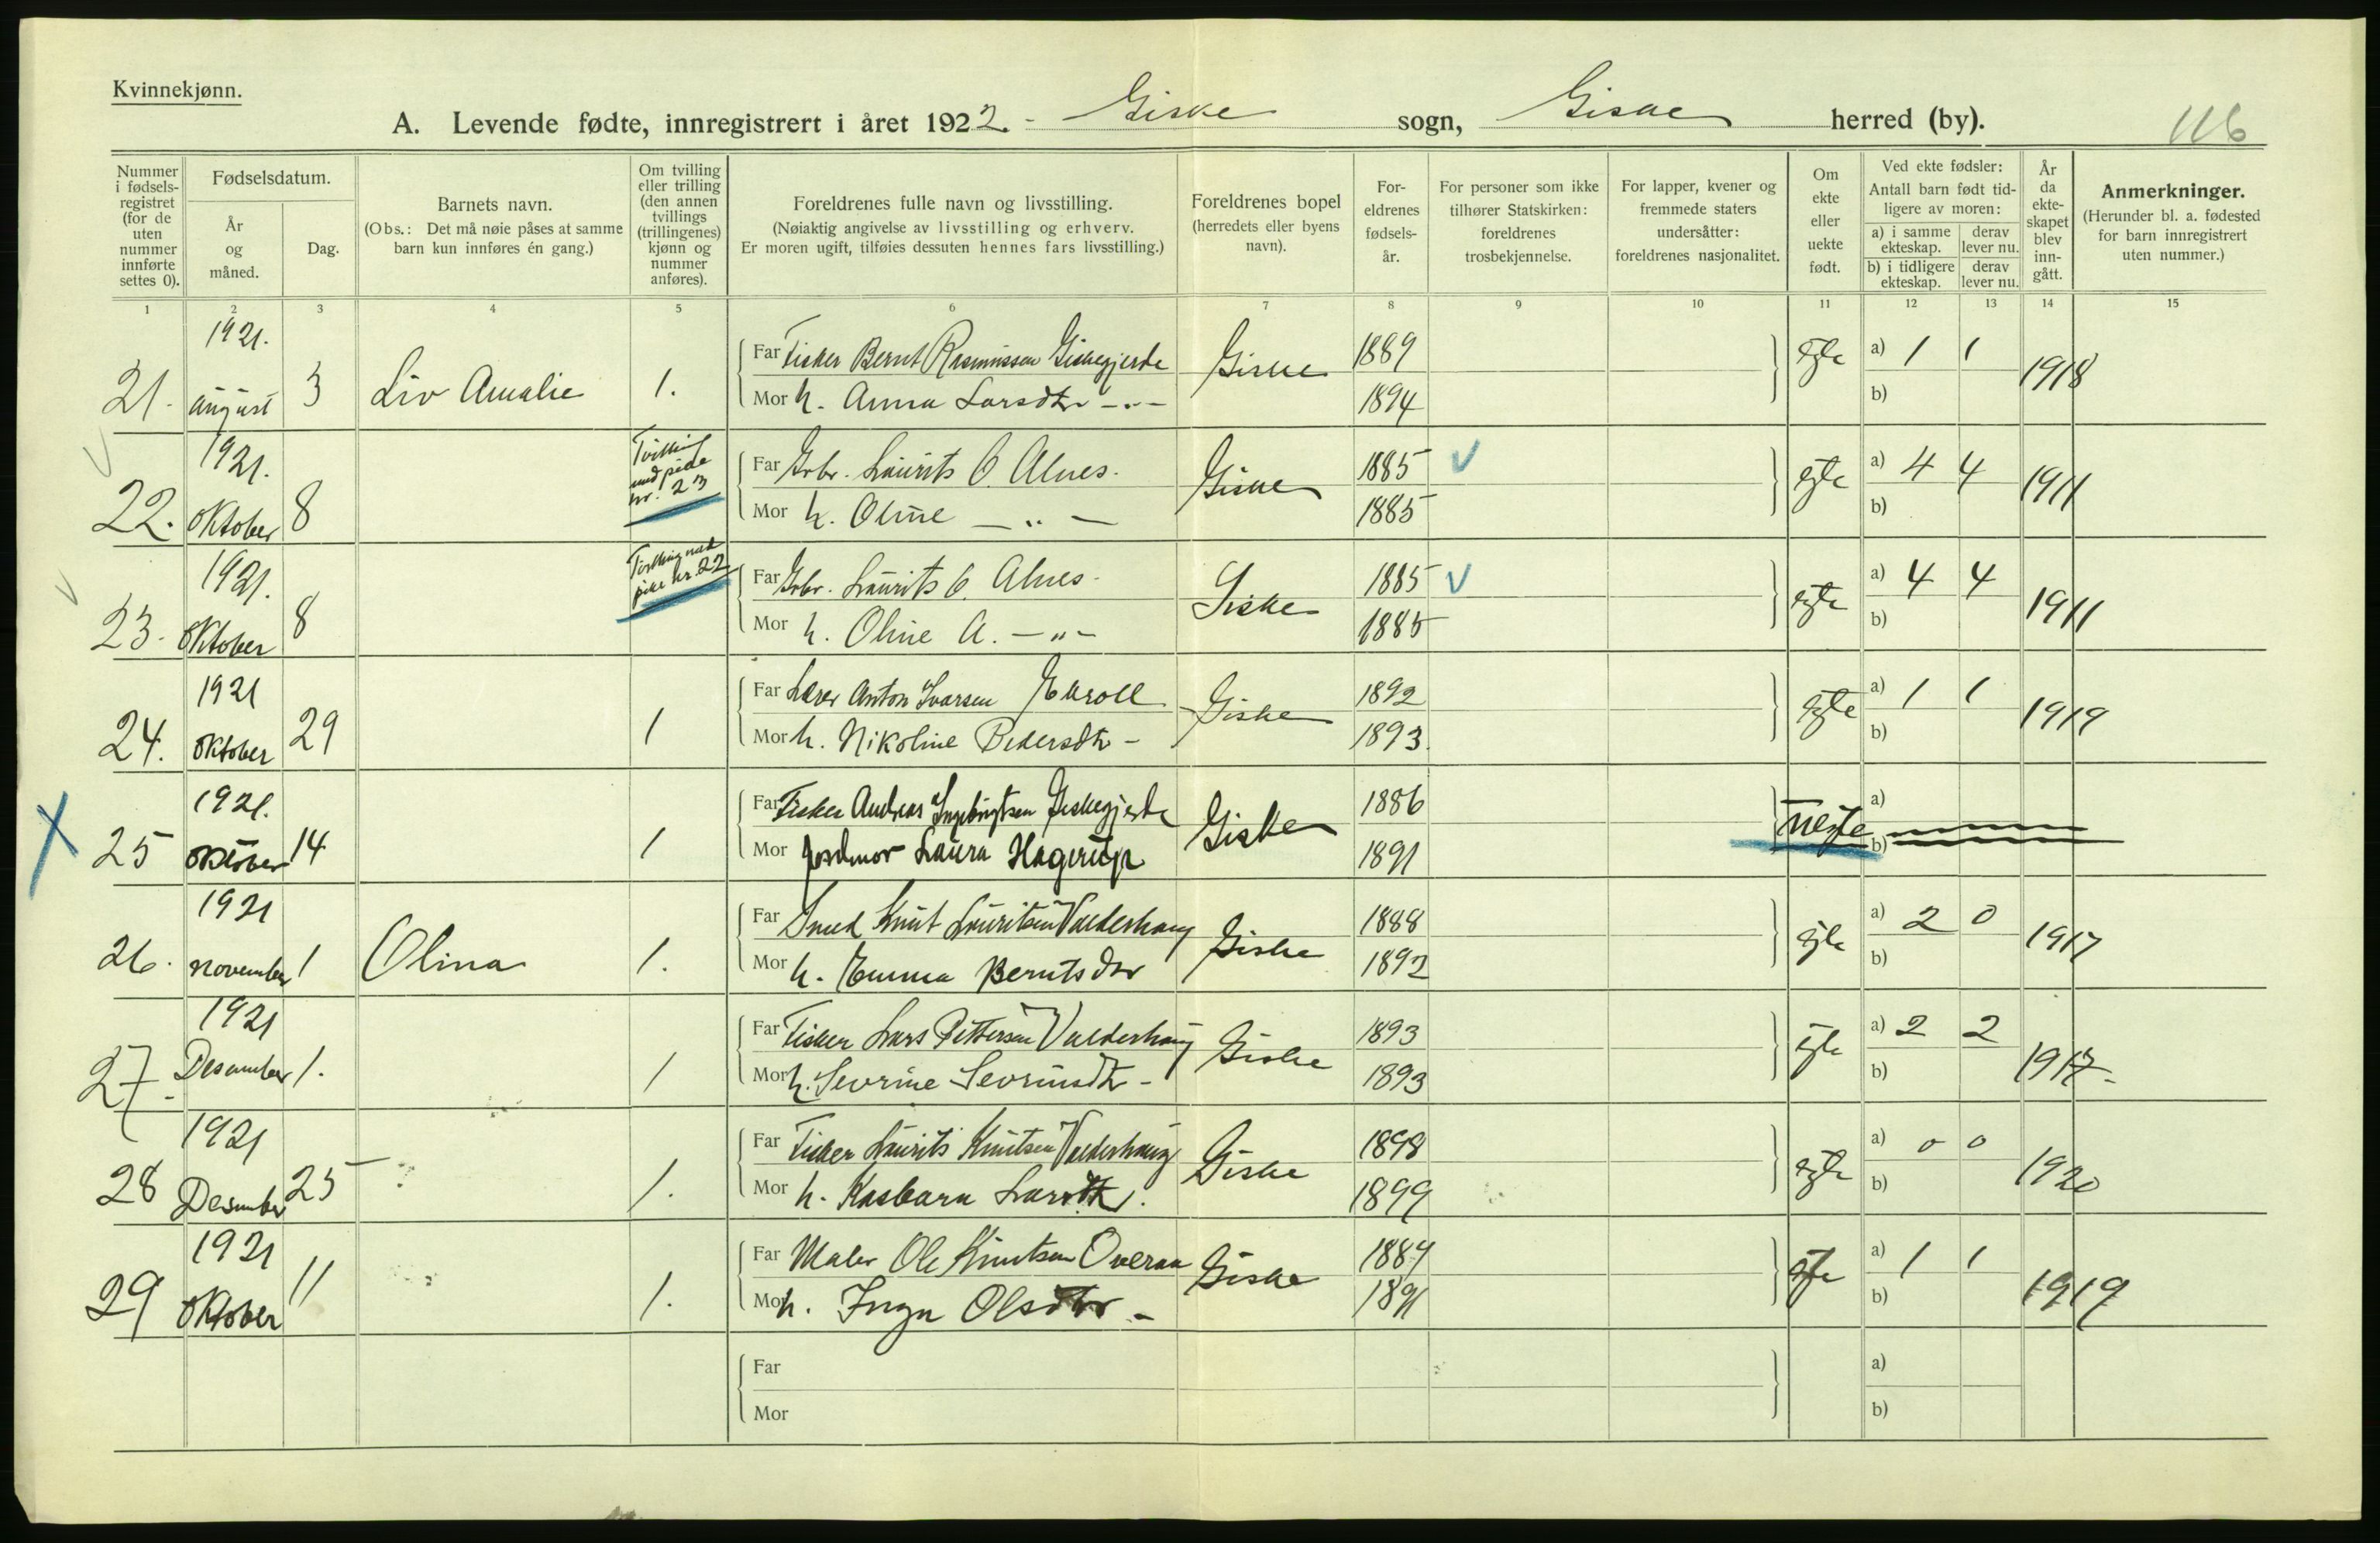 Kvinnekjønn.
A. Levende fødte, innregistrert i året 1922. - Giske sogn, Giske herred (by). 116
Nummer i fødsels-registret (for de uten nummer innførte settes 0).
Fødselsdatum.
År og måned.
Dag.
Barnets navn.
(Obs.: Det må nøie påses at samme barn kun innføres én gang.)
Om tvilling eller trilling (den annen tvillings (trillingenes) kjønn og nummer anføres).
Foreldrenes fulle navn og livsstilling.
(Nøiaktig angivelse av livsstilling og erhverv.
Er moren ugift, tilføies dessuten hennes fars livsstilling.)
Foreldrenes bopel
(herredets eller byens navn).
For-eldrenes fødsels-år.
For personer som ikke tilhører Statskirken: foreldrenes trosbekjennelse.
For lapper, kvener og fremmede staters undersåtter: foreldrenes nasjonalitet.
Om ekte eller uekte født.
Ved ekte fødsler:
Antall barn født tid-ligere av moren:
a) i samme ekteskap. derav lever nu.
b) i tidligere ekteskap. derav lever nu.
År da ekte-skapet blev inn-gått.
Anmerkninger.
(Herunder bl. a. fødested for barn innregistrert uten nummer.)
1 2 3 4 5 6 7 8 9 10 11 12 13 14 15
21. 1921. august 3 Liv Amalie 1. Far Fisker Bernt Rasmussen Giskegjerde Giske 1889 egte a) 1 1 1918
Mor h. Anna Larsdtr -"- 1894 b)
22. 1921. Oktober 8 Tvilling med pike nr. 23 Far Grbr. Laurits O. Alnes. Giske 1885 V egte a) 4 4 1911
Mor h. Oline -"- 1885 b)
23. 1921. Oktober 8 Tvilling med pike nr. 22 Far Grbr. Laurits O. Alnes. Giske 1885 V egte a) 4 4 1911
Mor h. Oline A. -"- 1885 b)
24. 1921 Oktober 29 1 Far Lærer Anton Ivarsen Ekroll Giske 1892 egte a) 1 1 1919
Mor h. Nikoline Pedersdtr - 1893. b)
X 25 1921. Oktober 14 1 Far Fisker Andreas Ingebrigtsen Giskegjerde Giske 1886 uegte a)
Mor Jordmor Laura Hagerup 1891 b)
26. 1921 November 1 Olina 1. Far Smed Knut Lauritsen Valderhaug Giske 1888 egte a) 2 0 1917
Mor h. Emma Berntsdtr 1892 b)
27. 1921 Desember 1. 1 Far Fisker Lars Pettersen Valderhaug Giske 1893 egte a) 2 2 1917.
Mor h. Sevrine Sevrinsdtr - 1893 b)
28 1921 Desember 25 1. Far Fisker Laurits Knutsen Valderhaug Giske 1898 egte a) 0 0 1920
Mor h. Kasbara Larsdtr. 1899 b)
29 1921 Oktober 11 1. Far Maler Ole Knutsen Overaa Giske 1889 egte a) 1 1 1919
Mor h. Inga Olsdtr - 1891 b)
Far a)
Mor b)